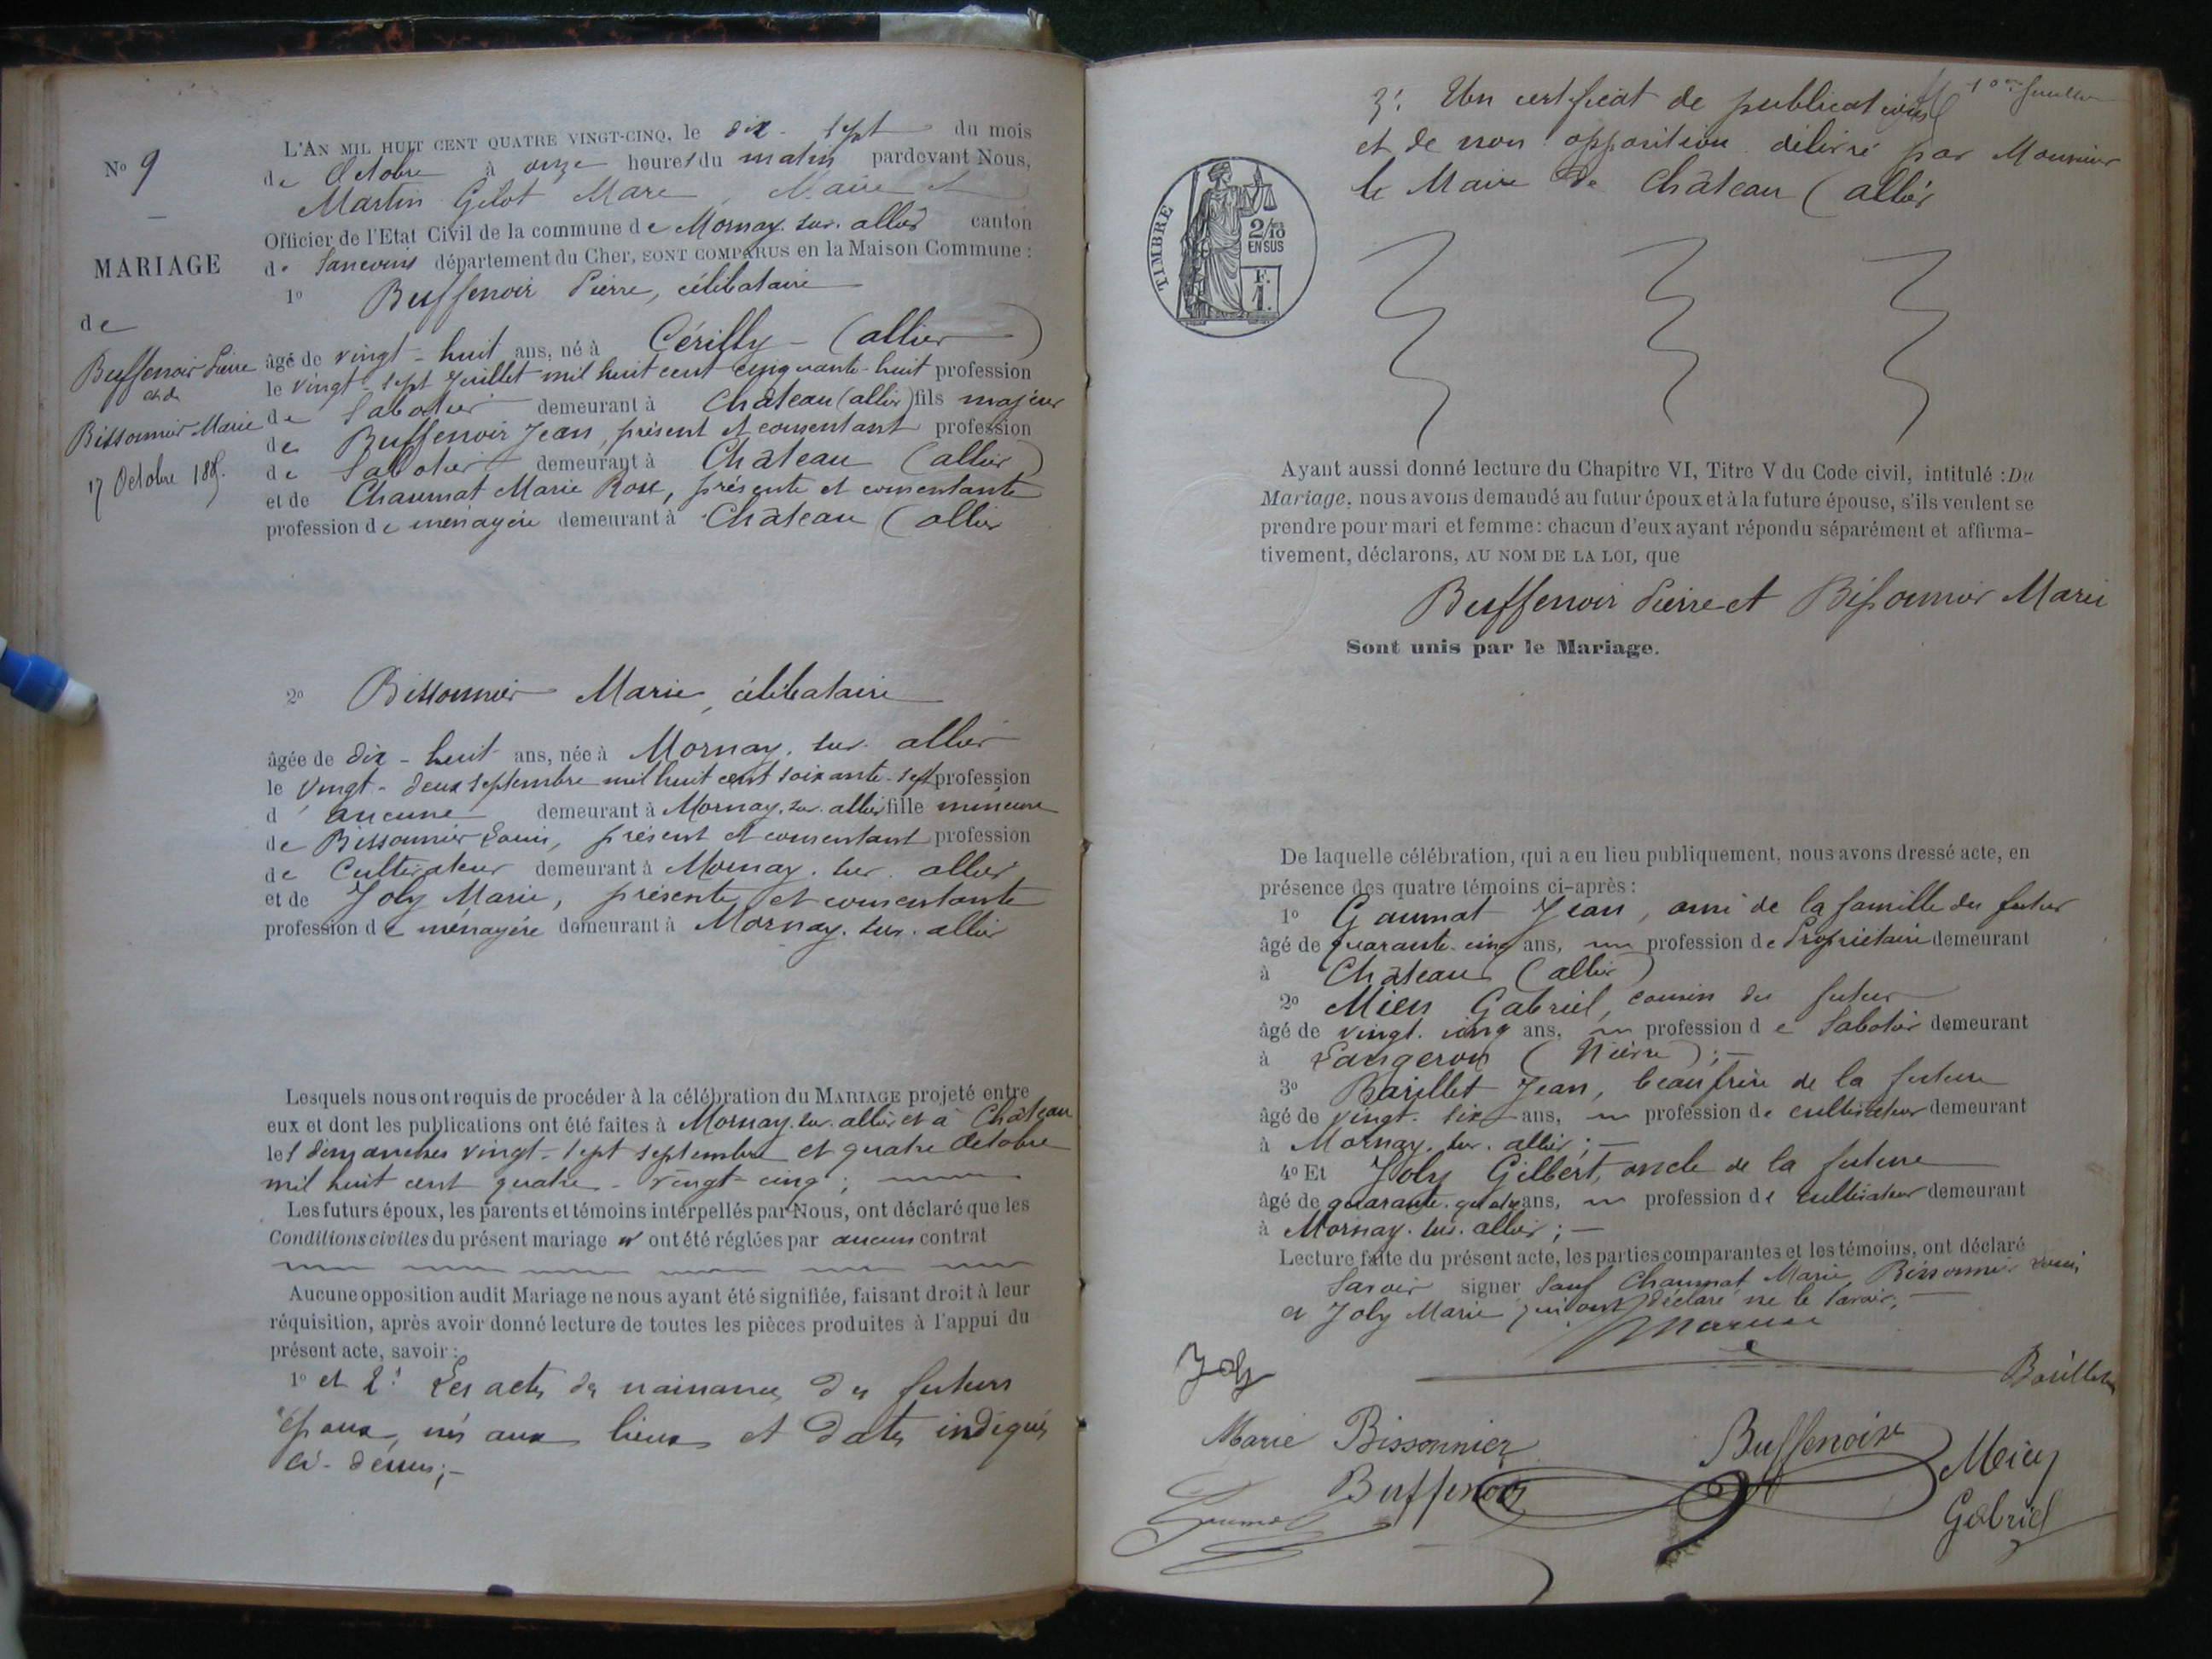 L'AN MIL HUIT CENT QUATRE VINGT-CINQ, le dix-sept du mois
de Octobre à onze heures du matin pardevant Nous,
Martin Gilot Marc, Maire et
Officier de l'Etat Civil de la commune de Mornay-sur-allier canton
de Sancoins département du Cher, SONT COMPARUS en la Maison Commune :
No 9
MARIAGE
de
Buffenoir Pierre
et de
Bissonnier Marie
17 Octobre 1885.
1o Buffenoir Pierre, célibataire
âgé de vingt-huit ans, né à Cérilly - (allier)
le vingt-sept Juillet mil huit cent cinquante-huit profession
de Sabotier demeurant à Château (allier) fils majeur
de Buffenoir Jean, présent et consentant profession
de Sabotier demeurant à Château (allier)
et de Chaumat Marie Rose, présente et consentante
profession de ménagère demeurant à Château (allier
2o Bissonnier Marie, célibataire
âgée de dix-huit ans, née à Mornay-sur-allier
le Vingt-deux septembre mil huit cent soixante-sept profession
d'aucune demeurant à Mornay-sur-allier fille mineure
de Bissonnier Louis, présent et consentant profession
de Cultivateur demeurant à Mornay-sur-allier
et de Joly Marie, présente et consentante
profession de ménagère demeurant à Mornay-sur-allier
Lesquels nous ont requis de procéder à la célébration du MARIAGE projeté entre
eux et dont les publications ont été faites à Mornay-sur-allier et à Château
les dimanches vingt-sept septembre et quatre Octobre
mil huit cent quatre-vingt-cinq ;
Les futurs époux, les parents et témoins interpellés par Nous, ont déclaré que les
Conditions civiles du présent mariage n' ont été réglées par aucun contrat
Aucune opposition audit Mariage ne nous ayant été signifiée, faisant droit à leur
réquisition, après avoir donné lecture de toutes les pièces produites à l'appui du
présent acte, savoir :
1o et 2o Les actes de naissances des futurs
époux, nés aux lieux et dates indiqués
ci-dessus ;-
10me feuillet
3o Un certificat de publications
et de non opposition délivré par Monsieur
le Maire de Château (allier
TIMBRE
2/10
EN SUS
F.
1.
Ayant aussi donné lecture du Chapitre VI, Titre V du Code civil, intitulé : Du
Mariage, nous avons demandé au futur époux et à la future épouse, s'ils veulent se
prendre pour mari et femme : chacun d'eux ayant répondu séparément et affirma-
tivement, déclarons, AU NOM DE LA LOI, que
Buffenoir Pierre et Bissonnier Marie
Sont unis par le Mariage.
De laquelle célébration, qui a eu lieu publiquement, nous avons dressé acte, en
présence des quatre témoins ci-après :
1o Gaumat Jean, ami de la famille du futur
âgé de quarante-cinq ans, profession de Propriétaire demeurant
à Château (allier)
2o Mien Gabriel, cousin du futur
âgé de vingt-cinq ans, profession de Sabotier demeurant
à Langeron (Nièvre) ;-
3o Barillet Jean, beau frère de la future
âgé de vingt-six ans, profession de cultivateur demeurant
à Mornay-sur-allier ;-
4o Et Joly Gilbert, oncle de la future
âgé de quarante-quatre ans, profession de cultivateur demeurant
à Mornay-sur-allier ;-
Lecture faite du présent acte, les parties comparantes et les témoins, ont déclaré
Savoir signer Sauf Chaumat Marie, Bissonnier Louis
et Joly Marie qui ont déclaré ne le Savoir,
Joly
Barillet
Marie Bissonnier
Buffenoir
Buffenoir
Gaumat
Gabriel